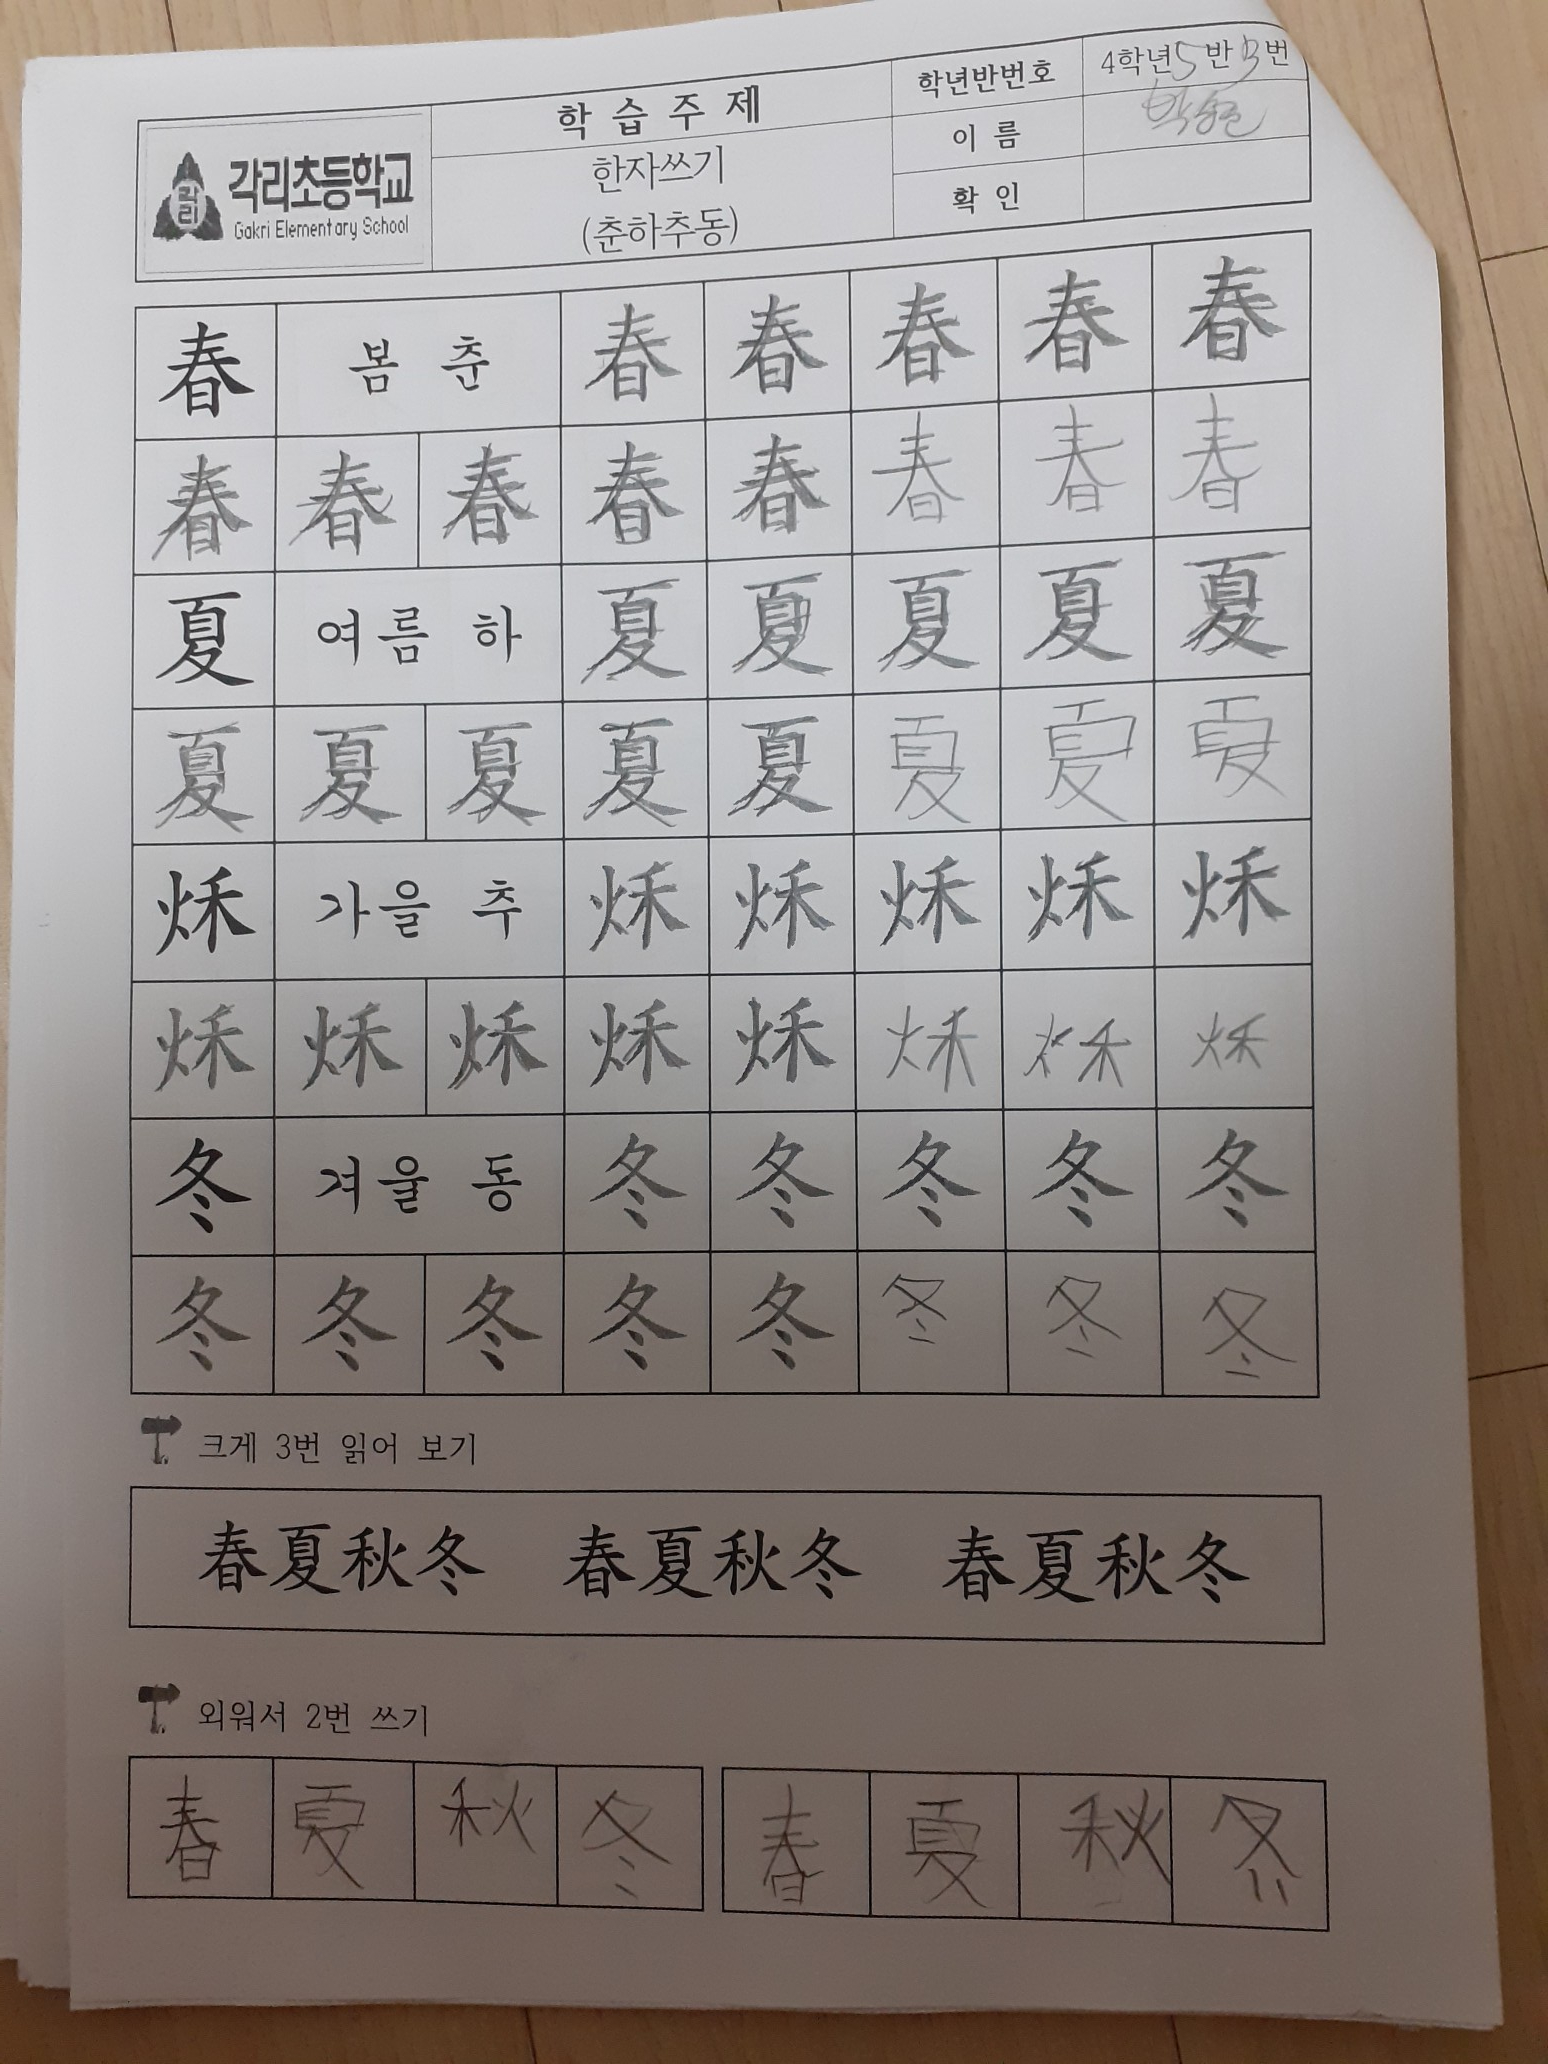 각리
각리초등학교
Gakri Elementary School
학 습 주 제
한자쓰기
(춘하추동)
학년반번호
4학년 5 반 3 번
이 름
확 인
春 봄 춘 春 春 春 春 春
春 春 春 春 春 春 春 春
夏 여름 하 夏 夏 夏 夏 夏
夏 夏 夏 夏 夏 夏 夏 夏
烌 가을 추 烌 烌 烌 烌 烌
烌 烌 烌 烌 烌 烌 烌 烌
冬 겨울 동 冬 冬 冬 冬 冬
冬 冬 冬 冬 冬 冬 冬 冬
크게 3번 읽어 보기
春夏秋冬 春夏秋冬 春夏秋冬
외워서 2번 쓰기
春 夏 秋 冬 春 夏 秋 冬